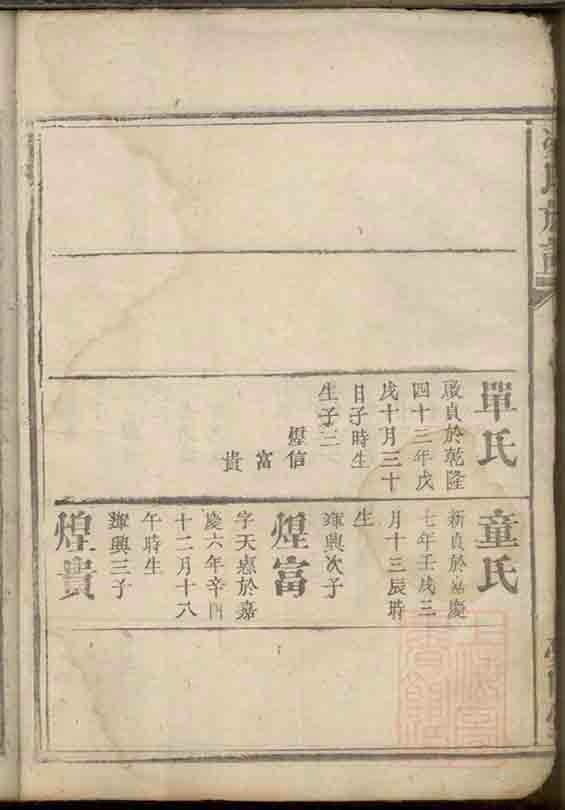 單氏
淑貞於乾隆
四十三年戊
戌十月三十
日子時生
生子三
煌信
富
貴
童氏
新貞於嘉慶
七年壬戌三
月十三辰時
生
輝興次子
煌富
字天惠於嘉
慶六年辛酉
十二月十八
午時生
輝興三子
煌貴
氏族譜